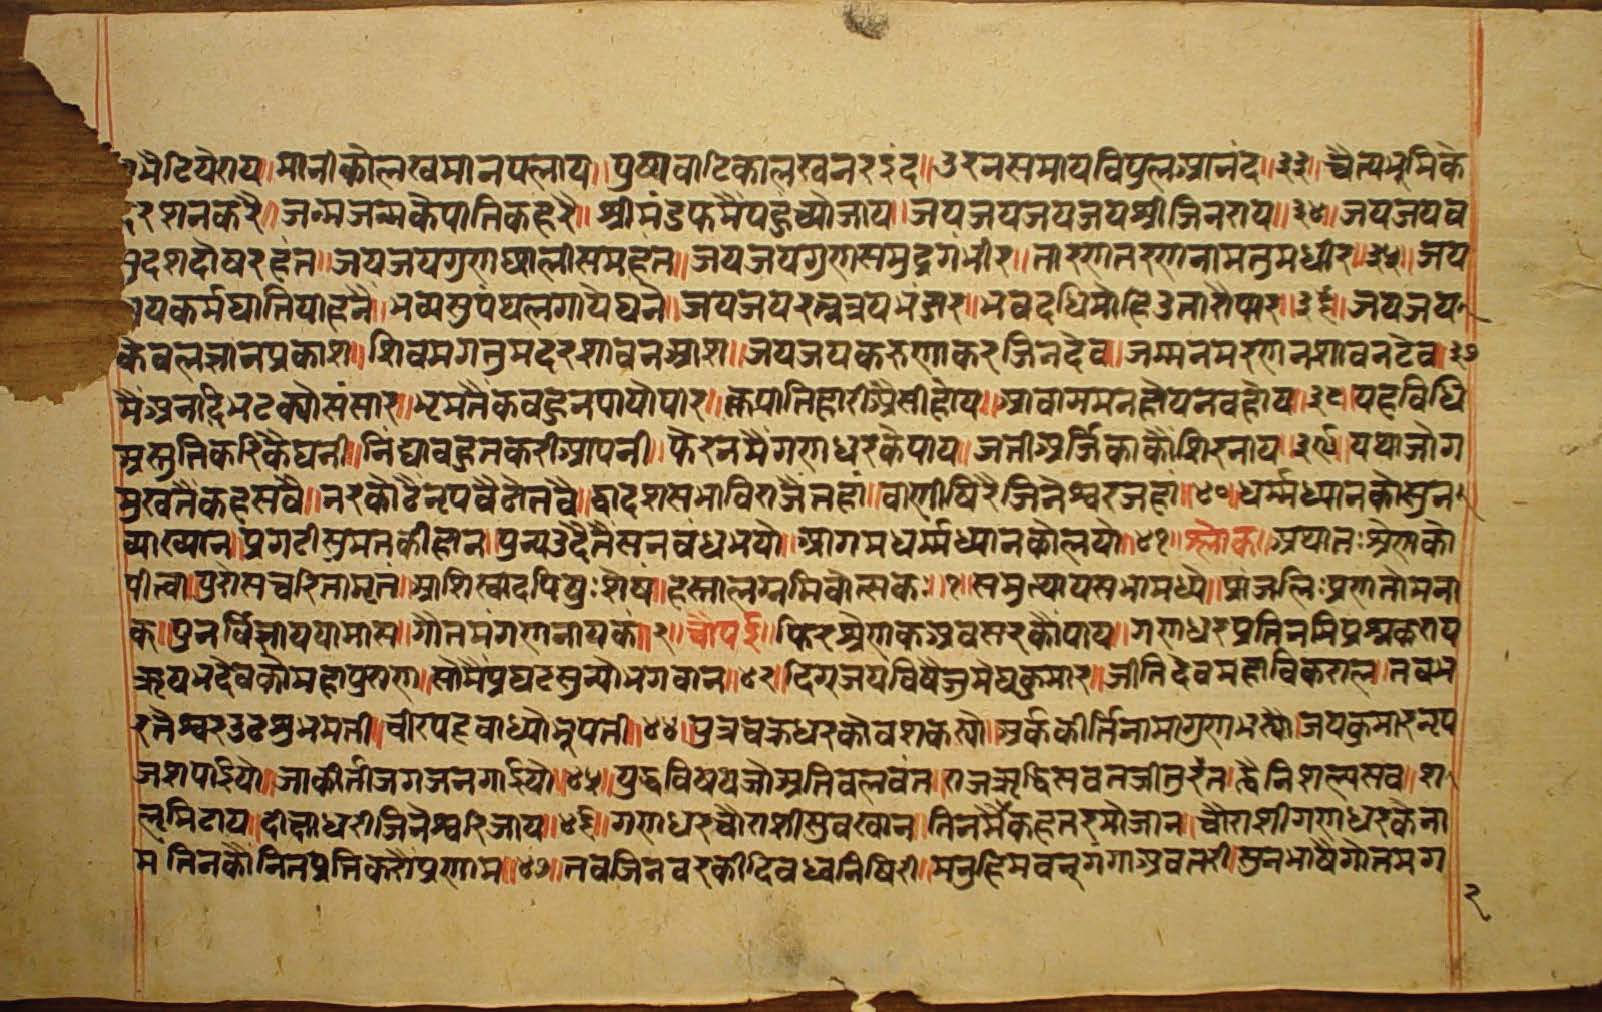 मैटियैराय॥ मानीकौलखमानपलाय॥ पुष्पवाटिकालखनरइंद॥ उरनसमायविपुलआनंद॥ ३३॥ चैत्यभूमिकै
दरशनकरै॥ जन्मजन्मकैपातिकहरै॥ श्रीमंडफमैपहुच्यौजाय॥ जयजयजयजयश्रीजिनराय॥ ३४॥ जयजयव
सुदशदोषरहंत॥ जयजयगुणछ्यालीसमहंत॥ जयजयगुणसमुद्रगंभीर॥ तारणतरणनामतुमधीर॥ ३५॥ जय
जयकर्मघातियाहनै॥ भव्यसुपंथलगायेघनै॥ जयजयरत्नत्रयभंडार॥ भवदधिमांहिउतारौपार॥ ३६॥ जयजय
केवलज्ञानप्रकाश॥ शिवमगतुमदरशावनआश॥ जयजयकरुणाकरजिनदेव॥ जम्मनमरणनशावनटेव॥ ३७
मैअनादिभटक्यौसंसार॥ भ्रमतैकबहुनपायौपार॥ कृपातिहारीअैसीहोय॥ आवागमनहौयनवहोय॥ ३८॥ यहविधि
अस्तुतिकरिकैघनी॥ निंद्याबहुतकरीआपनी॥ फेरनमैगणधरकैपाय॥ जतीअर्जिकाकौशिरनाय॥ ३९॥ यथाजोग
मुखतैकहसवै॥ नरकोठैनृपबैठोतवै॥ द्वादशसभाविराजैतहां॥ वाणीषिरैजिनेश्वरजहां॥ ४०॥ धर्म्मध्यानकौसुन
व्याख्यान॥ प्रगटीसुमतकीहान॥ पुन्यउदैतैसनबंधभयौ॥ आगमधर्म्मध्यानकौलयौ॥ ४१॥ श्लोक॥ अथातःश्रेणिको
पीत्वा॥ पुरोसच्चरितामृतं॥ आशिस्वादपिपुःशेषं॥ हस्तालग्नमिवोत्सकः॥ १॥ समुत्थायसभामध्ये॥ प्रांजलिःप्रणतोमना
क॥ पुनर्विज्ञापयामास॥ गौतमंगणनायकं॥ २॥ चौपई॥ फिरश्रेणकअवसरकौपाय॥ गणधरप्रतिनमिप्रश्नकराय
ऋषभदेवकौमहापुराण॥ सोमैप्रघटसुन्यौभगवान॥ ४३॥ दिगजयविषैजुमेघकुमार॥ जीतिदेवमहाविकराल॥ तवभ
रतेश्वरउठशुभमती॥ वीरपटबाध्यौभूपती॥ ४४॥ पुत्रचक्रधरकौवशकस्यौ॥ अर्ककीर्तिनामागुणभस्यौ॥ जयकुमारनृप
जशपाईयो॥ जाकीर्तीजगजनगाईयो॥ ४५॥ पुद्धविषयजोअतिबलवंत॥ राजऋद्धिसवतजीतुरंत॥ ह्वैनिशल्यसव॥ श
ल्यमिटाय॥ दीक्षाधरीजिनेश्वरिजाय॥ ४६॥ गणधरचौराशीसुवखान॥ तिनमैकहतरमोजान॥ चौराशीगणधरकेना
म॥ तिनकौनितप्रतिकरौप्रणाम॥ ४७॥ तवजिनवरकीदिवध्वनिषिरी॥ मनुहिमवनगंगाअवतरी॥ सुनभाषैगोतमग
२